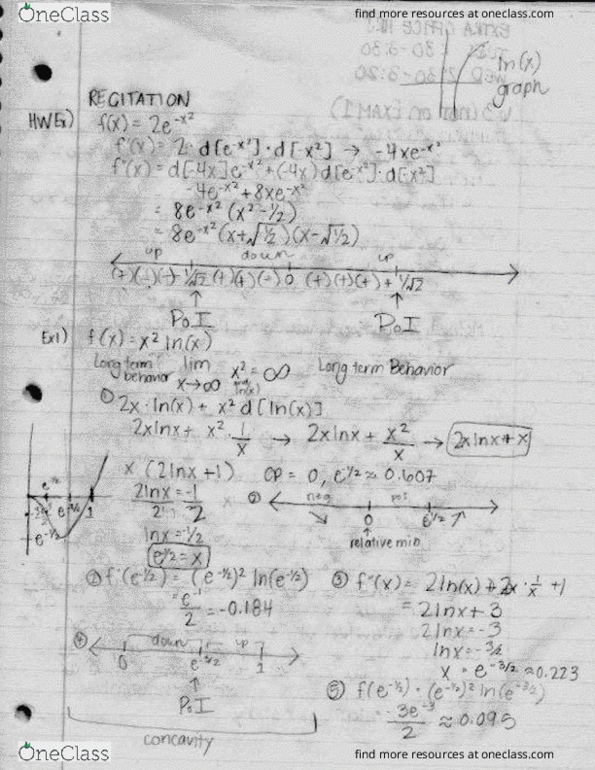 OneClass
find more resources at oneclass.com
ln(x)
graph
RECITATION
HWEx)
f(x) = 2e^-x²
f'(x) = 2 · d[e^-x²] · d[-x²] → -4xe^-x²
f''(x) = d[-4x]e^-x² + (-4x) d[e^-x²] · d[x²]
-4e^-x² + 8xe^-x²
= 8e^-x² (x² - 1/2)
= 8e^-x² (x+√1/2)(x-√1/2)
up down up
0 1/√2
PoI PoI
Ex1) f(x) = x² ln(x)
Long term behavior lim x→∞ x² ln(x) = ∞ Long term Behavior
① 2x · ln(x) + x² d[ln(x)]
2xlnx + x² · 1/x → 2xlnx + x²/x → 2xlnx + x
x (2lnx + 1) CP = 0, e^1/2 ≈ 0.607
2lnx = -1
2 2
② neg pos
0 e^1/2
relative min
lnx = -1/2
e^1/2 = x
1
② f(e^-1/2) = (e^-1/2)² ln(e^-1/2)
= e^-1
2 = -0.184
③ f''(x) = 2ln(x) + 2x · 1/x + 1
= 2lnx + 3
2lnx = -3
lnx = -3/2
x = e^-3/2 ≈ 0.223
④ down up
0 e^-3/2 1
PoI
concavity
⑤ f(e^-1/2) = (e^-1/2)² ln(e^-3/2)
-3e^-3
2 ≈ 0.095
OneClass
find more resources at oneclass.com